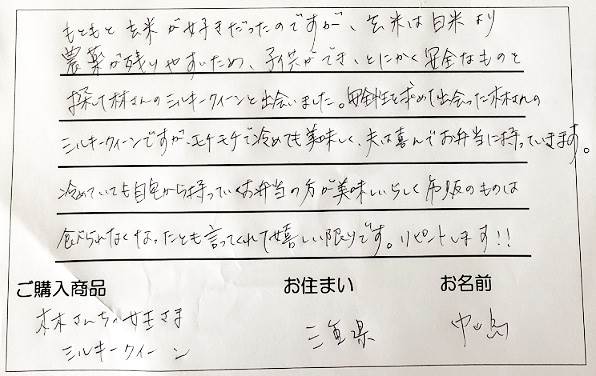 もともと玄米が好きだったのですが、玄米は白米より
農薬が残りやすいため、子供ができ、とにかく安全なものを
探して林さんのミルキークイーンと出会いました。安全性を求めて出会った林さんの
ミルキークイーンですが、モチモチで冷めても美味しく、夫は喜んでお弁当に持っていきます。
冷めていても自宅から持っていくお弁当の方が美味しいらしく市販のものは
食べられなくなったとも言ってくれて嬉しい限りです。リピートします!!
ご購入商品 お住まい お名前
林さんちの女王さま 三重県 中島
ミルキークイーン